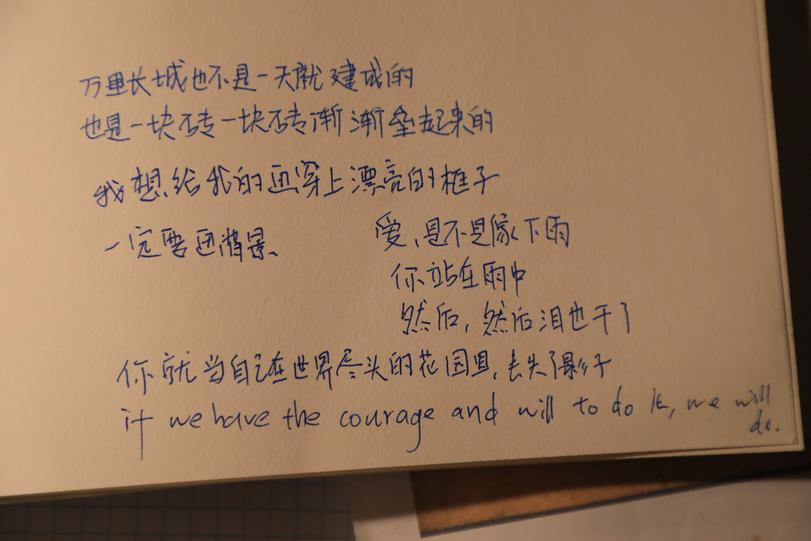 万里长城也不是一天就建成的
也是一块砖一块砖渐渐垒起来的
我想给我的画穿上漂亮的框子
一定要画背景
爱,是不是像下雨
你站在雨中
然后,然后泪也干了
你就当自己在世界尽头的花园里,丢失了影子
if we have the courage and will to do it, we will
do.